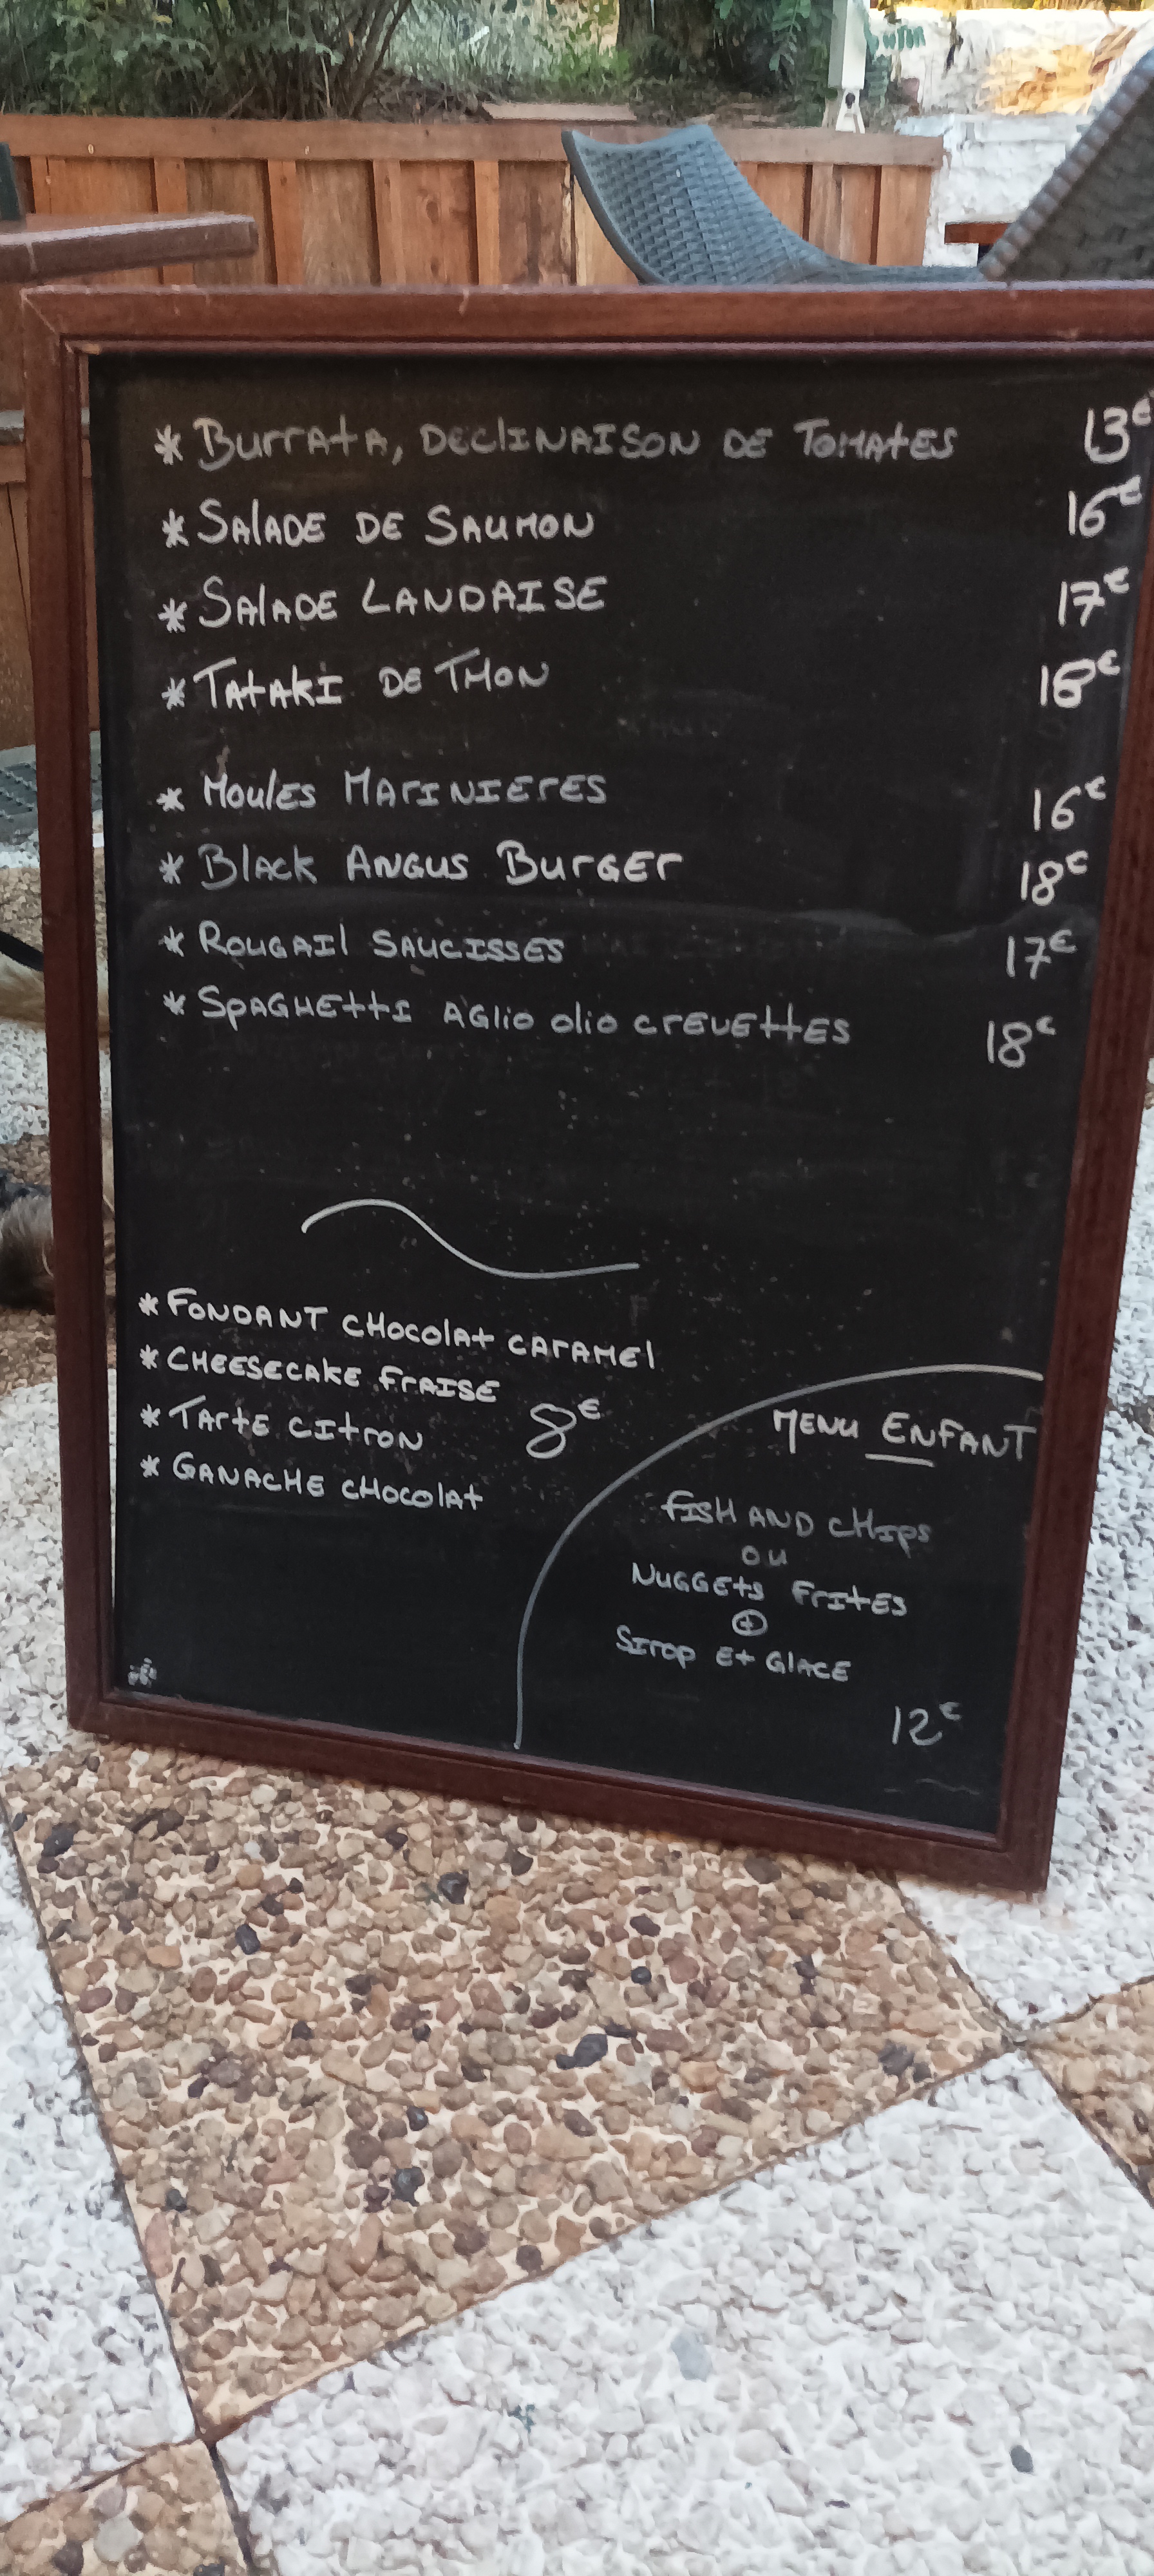 * Burrata, Declinaison de Tomates 13€
* Salade de Saumon 16€
* Salade Landaise 17€
* Tataki de Thon 18€
* Moules Marinieres 16€
* Black Angus Burger 18€
* Rougail Saucisses 17€
* Spaghetti Aglio olio crevettes 18€
* Fondant chocolat caramel
* Cheesecake fraise
* Tarte citron 8€
* Ganache chocolat
Menu Enfant
Fish and chips
ou
Nuggets Frites
+
Sirop et Glace
12€